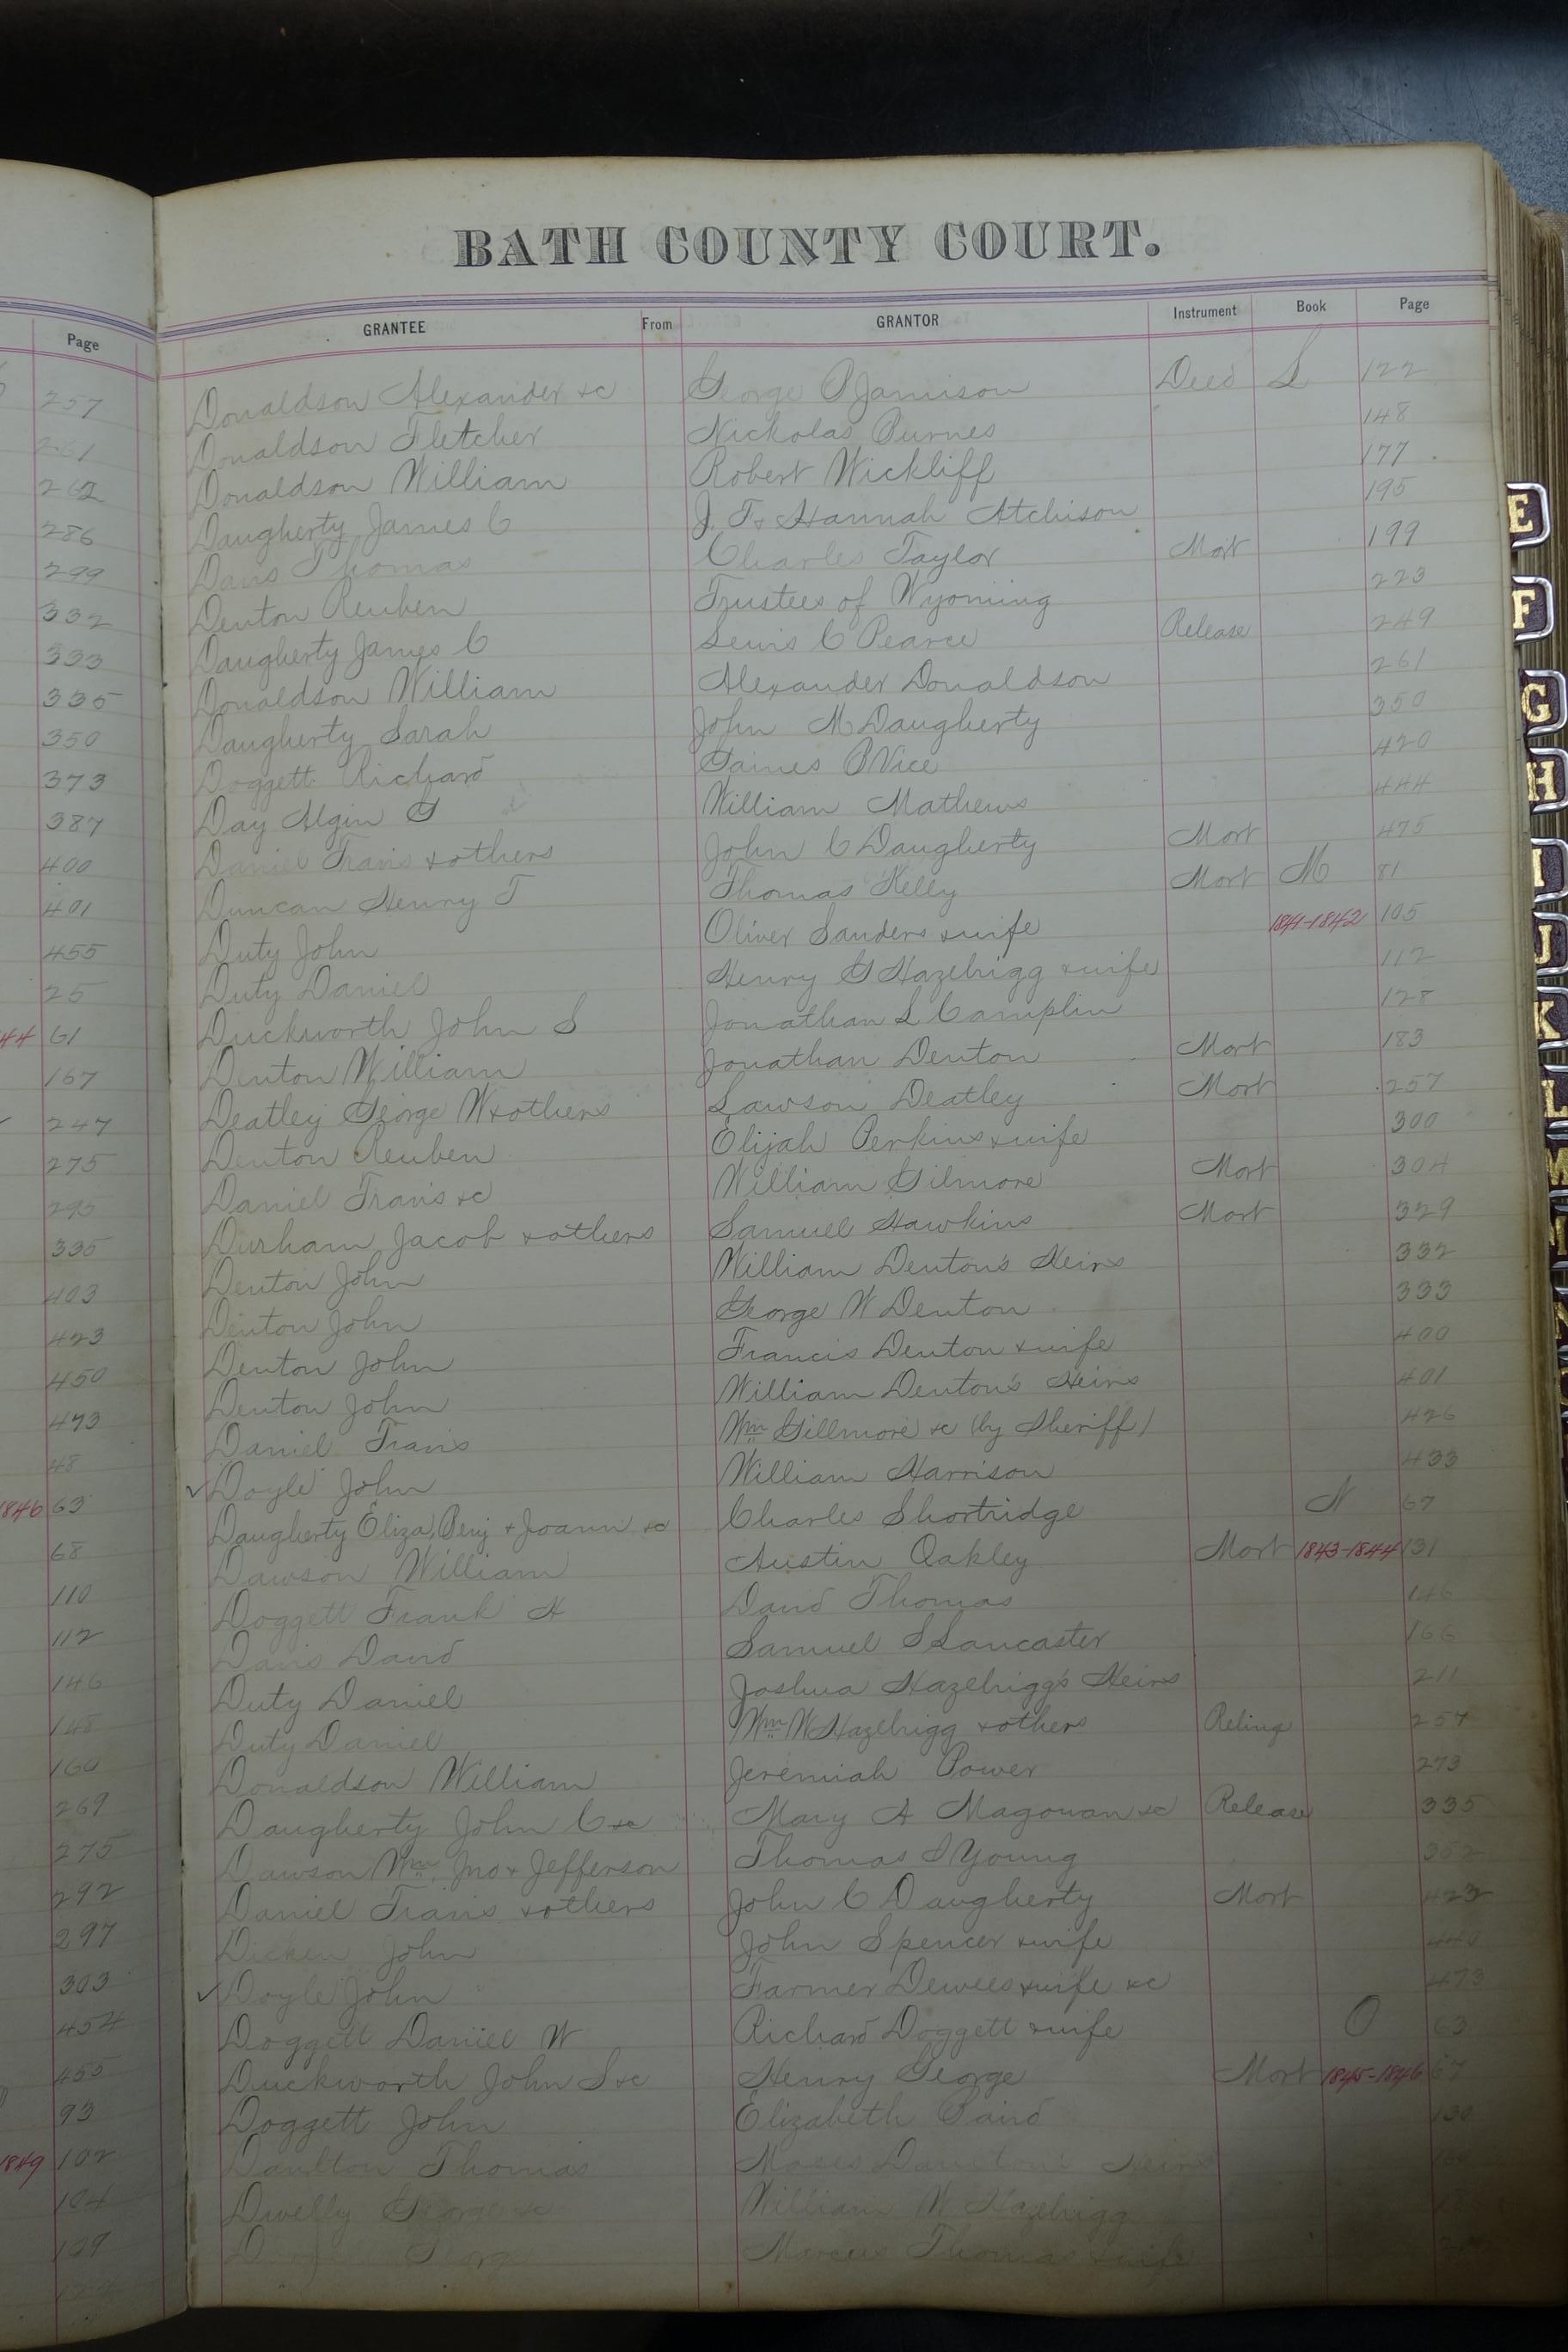 BATH COUNTY COURT.
Page GRANTEE From GRANTOR Instrument Book Page
257 Donaldson Alexander &c George P Jamison Deed L 122
261 Donaldson Fletcher Nickolas Burnes 148
262 Donaldson William Robert Wickliff 177
286 Daugherty James C J. T & Hannah Atchison 195
299 Davis Thomas Charles Taylor Mort 199
332 Denton Reuben Trustees of Wyoming 223
333 Daugherty James C Lewis C Pearce Release 249
335 Donaldson William Alexander Donaldson 261
350 Daugherty Sarah John M Daugherty 350
373 Doggett Richard James P Vice 420
387 Day Algin G William Mathews 444
400 Daniel Travis & others John C Daugherty Mort 475
401 Duncan Henry T Thomas Kelly Mort M 81
455 Duty John Oliver Sanders & wife 1841-1842 105
25 Duty Daniel Henry G Hazelrigg & wife 112
44 61 Duckworth John S Jonathan L Camplin 128
167 Denton William Jonathan Denton Mort 183
247 Deatley George W & others Lawson Deatley Mort 257
275 Denton Reuben Elijah Perkins & wife 300
295 Daniel Travis &c William Gilmore Mort 304
335 Durham Jacob & others Samuel Hawkins Mort 329
403 Denton John William Denton's Heirs 332
423 Denton John George W Denton 333
450 Denton John Francis Denton & wife 400
473 Denton John William Denton's Heirs 401
48 Daniel Travis Wm Gillmore &c (by Sheriff) 426
1846 63 ✓ Doyle John William Harrison 433
68 Daugherty Eliza, Benj & Joann &c Charles Shortridge N 67
110 Dawson William Austin Oakley Mort 1843-1844 131
112 Doggett Frank H David Thomas 146
146 Davis David Samuel S Lancaster 166
148 Duty Daniel Joshua Hazelrigg's Heirs 211
160 Duty Daniel Wm W Hazelrigg & others Relinq 257
269 Donaldson William Jeremiah Power 273
275 Daugherty John C &c Mary A Magowan &c Release 335
292 Dawson Wm, Jno & Jefferson Thomas S Young 352
297 Daniel Travis & others John C Daugherty Mort 423
303 Dicken John John Spencer & wife 440
454 ✓ Doyle John Farmer Dewees & wife &c 473
455 Doggett Daniel W Richard Doggett & wife O 63
93 Duckworth John S &c Henry George Mort 1845-1846 67
1849 102 Doggett John Elizabeth Baird 130
104 Daulton Thomas Moses Daulton's Heirs
109 Dwelly George &c William W Hazelrigg
Marcus Thomas & wife